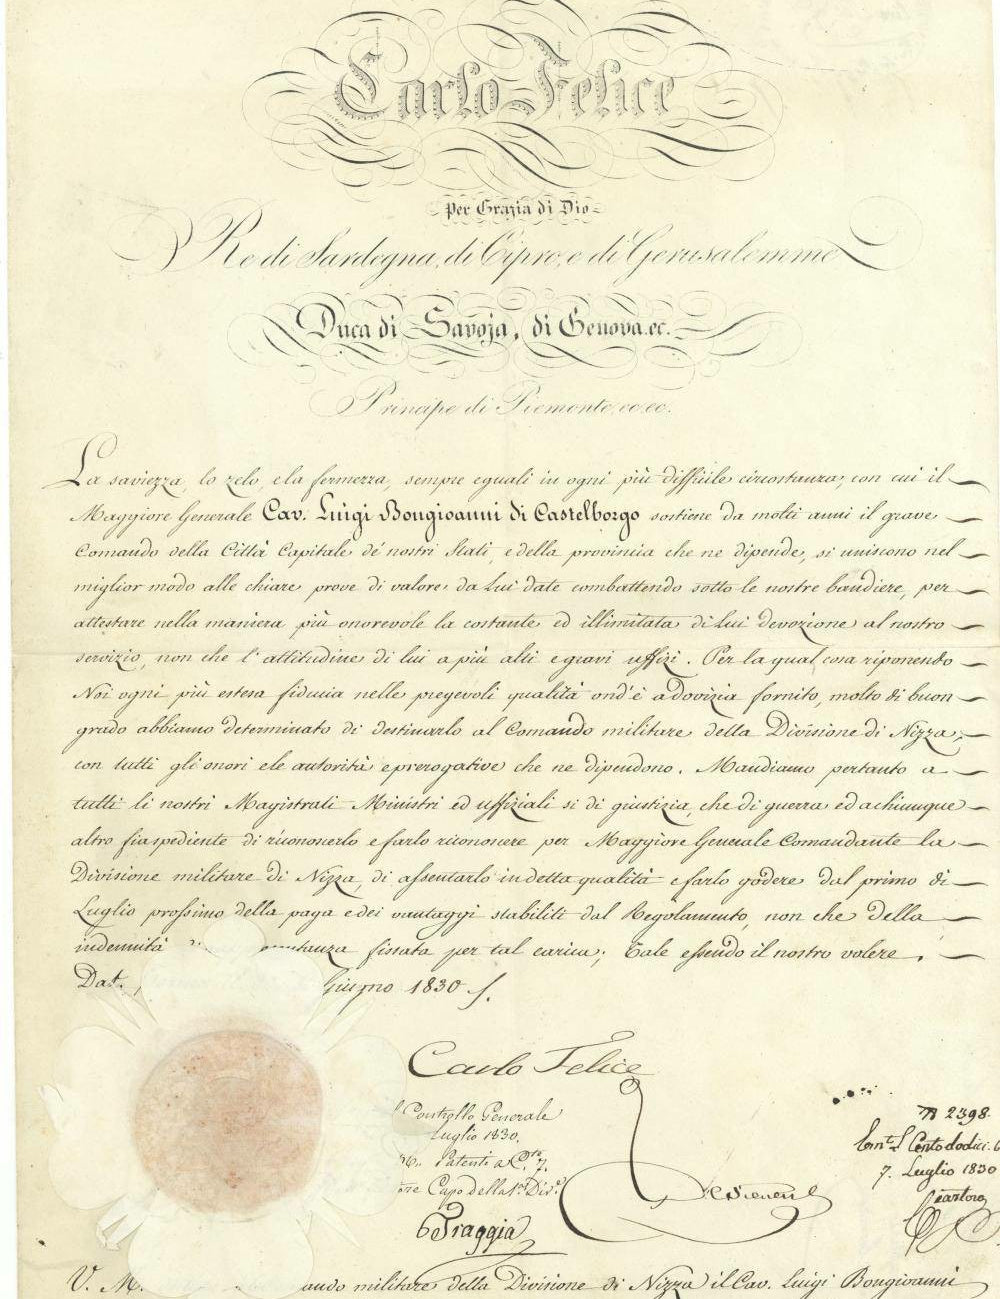 Carlo Felice
Per Grazia di Dio
Re di Sardegna, di Cipro, e di Gerusalemme
Duca di Savoja, di Genova. ec.
Principe di Piemonte, ec. ec.
La saviezza, lo zelo, e la fermezza, sempre eguali in ogni più difficile circostanza, con cui il
Maggiore Generale Cav. Luigi Bongioanni di Castelborgo sostiene da molti anni il grave
Comando della Città Capitale de' nostri Stati, e della provincia che ne dipende, si uniscono nel
miglior modo alle chiare prove di valore da Lui date combattendo sotto le nostre bandiere, per
attestare nella maniera più onorevole la costante ed illimitata di Lui devozione al nostro
servizio, non che l'attitudine di lui a più alti e gravi uffizi. Per la qual cosa riponendo
Noi ogni più estesa fiducia nelle pregevoli qualità ond'è a dovizia fornito, molto di buon
grado abbiamo determinato di destinarlo al Comando militare della Divisione di Nizza,
con tutti gli onori e le autorità e prerogative che ne dipendono. Mandiamo pertanto a
tutti li nostri Magistrati Ministri ed uffiziali si di giustizia, che di guerra ed a chiunque
altro fia spediente di riconoscerlo e farlo riconoscere per Maggiore Generale Comandante la
Divisione militare di Nizza, di assentarlo in detta qualità e farlo godere dal primo di
Luglio prossimo della paga e dei vantaggi stabiliti dal Regolamento, non che della
indennità fissata per tal carica; Tale essendo il nostro volere.
Dat. Giugno 1830
Carlo Felice
Controllo Generale
Luglio 1830.
Patenti a C.te 7.
Capo della 1.a Div.e
Traggia
N 2398
Cento dodici
7. Luglio 1830
V. M. ando militare della Divisione di Nizza il Cav. Luigi Bongiovanni